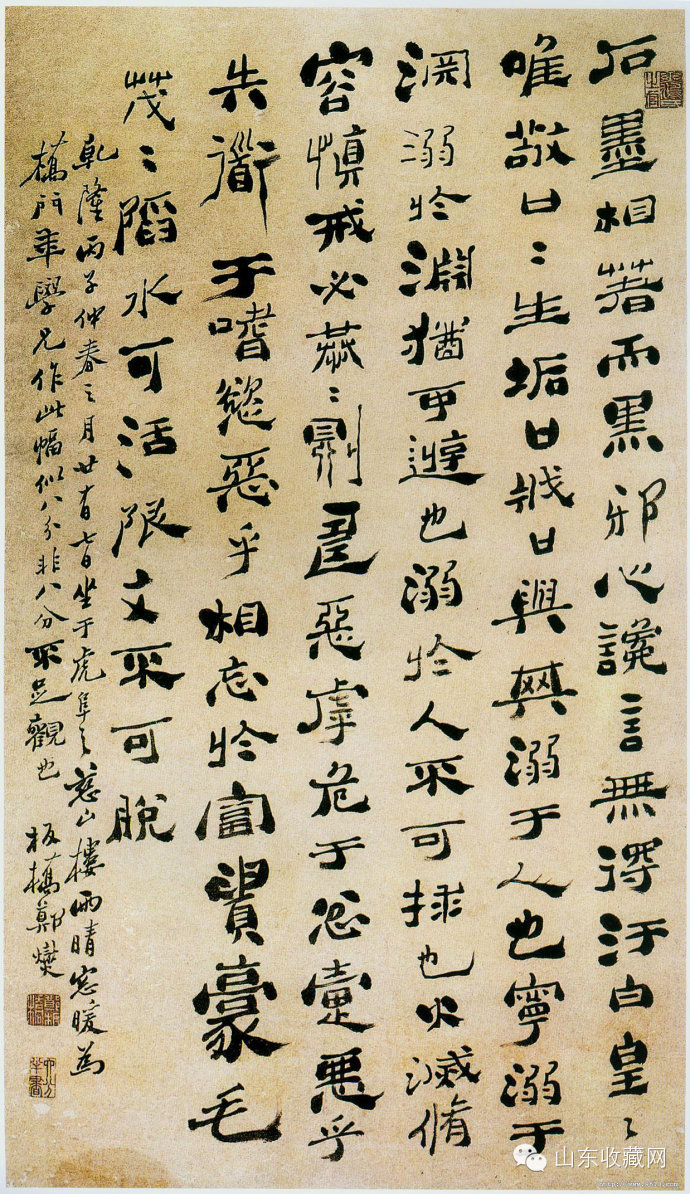 石墨相著而黑邪心讒言無淂汙白皇〻
唯敬口〻生垢口戕口與其溺于人也寧溺于
渊溺扵淵猶可遊也溺扵人不可捄也火滅脩
容慎戒必恭〻則壽惡虖危于忿疐惡乎
失衜于嗜慾惡乎相忘扵富貴豪毛
茂〻陷水可活陷文不可脫
乾隆丙子仲春之月廿有七日坐于虎阜之山樓雨晴窓暖為
橋門年學兄作此幅似八分非八分不足觀也 板橋鄭燮
山东收藏网